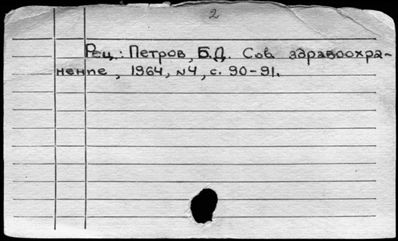 2
Рец.: Петров, Б.Д. Сов здравоохра-
нение, 1964, №4, с. 90-91.